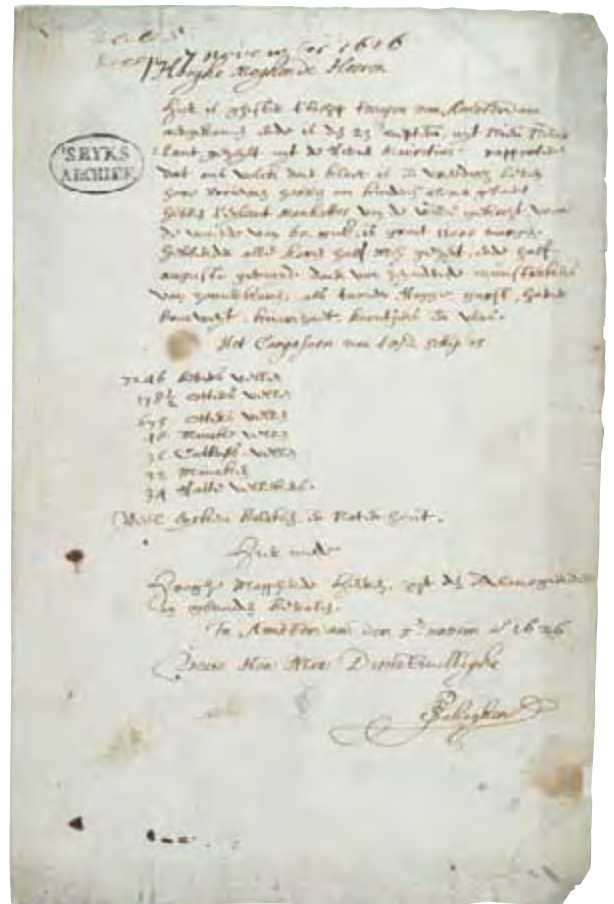 Recep. 7 novem er 1626
Hooghe Moghende Heeren
hier is ghister t'schip t'wapen van Amsterdam
aengekomen ende is den 23 septem. uyt Nieu Neder
lant gezeylt uyt de rivier Mauritius. rapporteert
dat ons volck daer kloec is en vreedigh leven
haer vrouwen hebben oock kinders aldaer gebaert
hebben t'eylant Manhattes van de wilde gekocht, voor
de waerde van 60 gul. is groot 11000 morgen.
hebbende alle koren half mey gezeyt, ende half
augusto gemayt. daer van zeyndende munsterkens
van zomerkoren, als tarwe, Rogge, garst, haver
boucweyt, knarisaet, boontjens en vlas.
Het Cargasoen van t'sz schip is
7246 bevers vellen
178½ otters vellen
675 otters vellen
48 mincke vellen
36 Catloes vellen
33 mincken
34 Ratte vellekens.
Veel eycken balcken, en Noten hout.
Hier mede
Hooghe Moghende heeren, zyt den Almogende
in genaden bevolen.
In Amsterdam den 5e novem. ao 1626
Uwe Hoo: Moo: Dienstwillighe
PSchaghen
'S RYKS
ARCHIEF